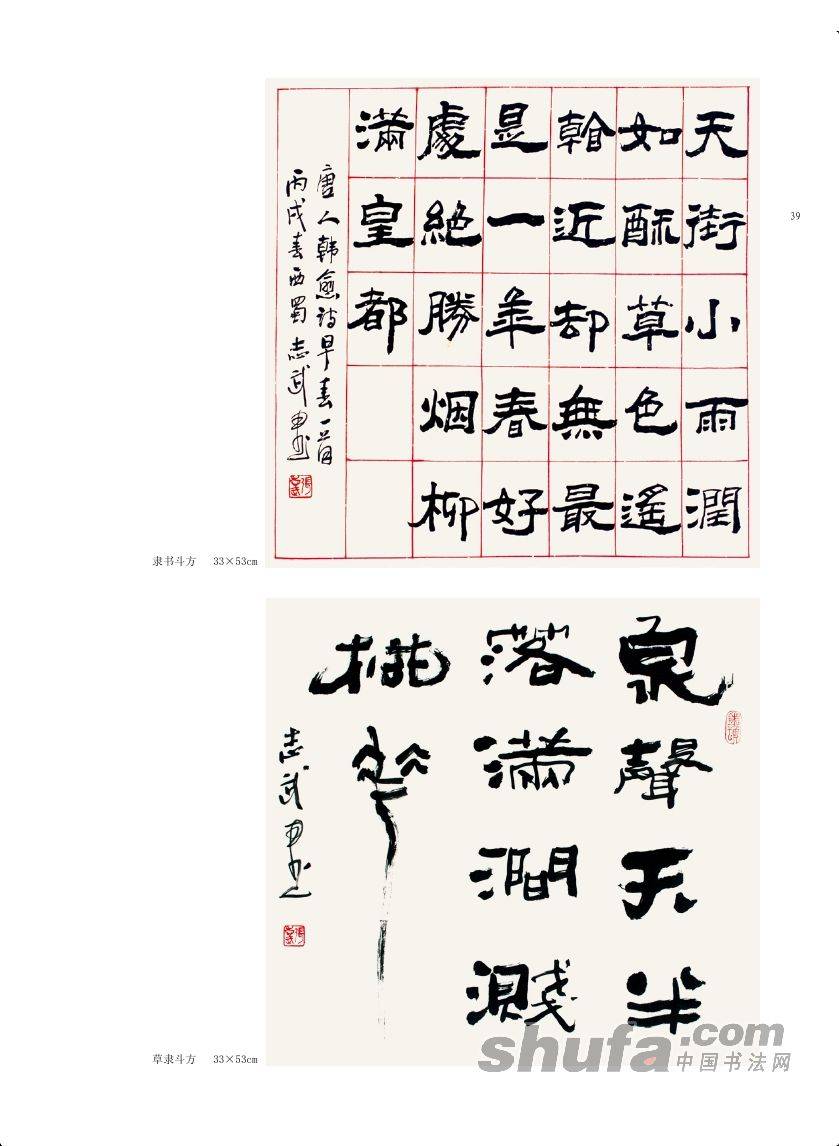 39
天街小雨潤
如酥草色遙
看近却無最
是一年春好
處絕勝烟柳
滿皇都
唐人韩愈诗早春一首
丙戌春西蜀志武书
隶书斗方 33×53cm
泉聲天半
落滿澗濺
桃花
志武书
草隶斗方 33×53cm
shufa.com
中国书法网